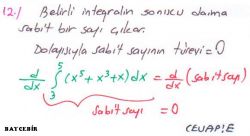 12-) Belirli integralin sonucu daima
sabit bir sayı çıkar.
Dolayısıyla sabit sayının türevi=0
d/dx ∫₃⁵ (x⁵+x³+x)dx = d/dx (sabit sayı)
sabit sayı =0
CEVAP:E
BAYCEBİR